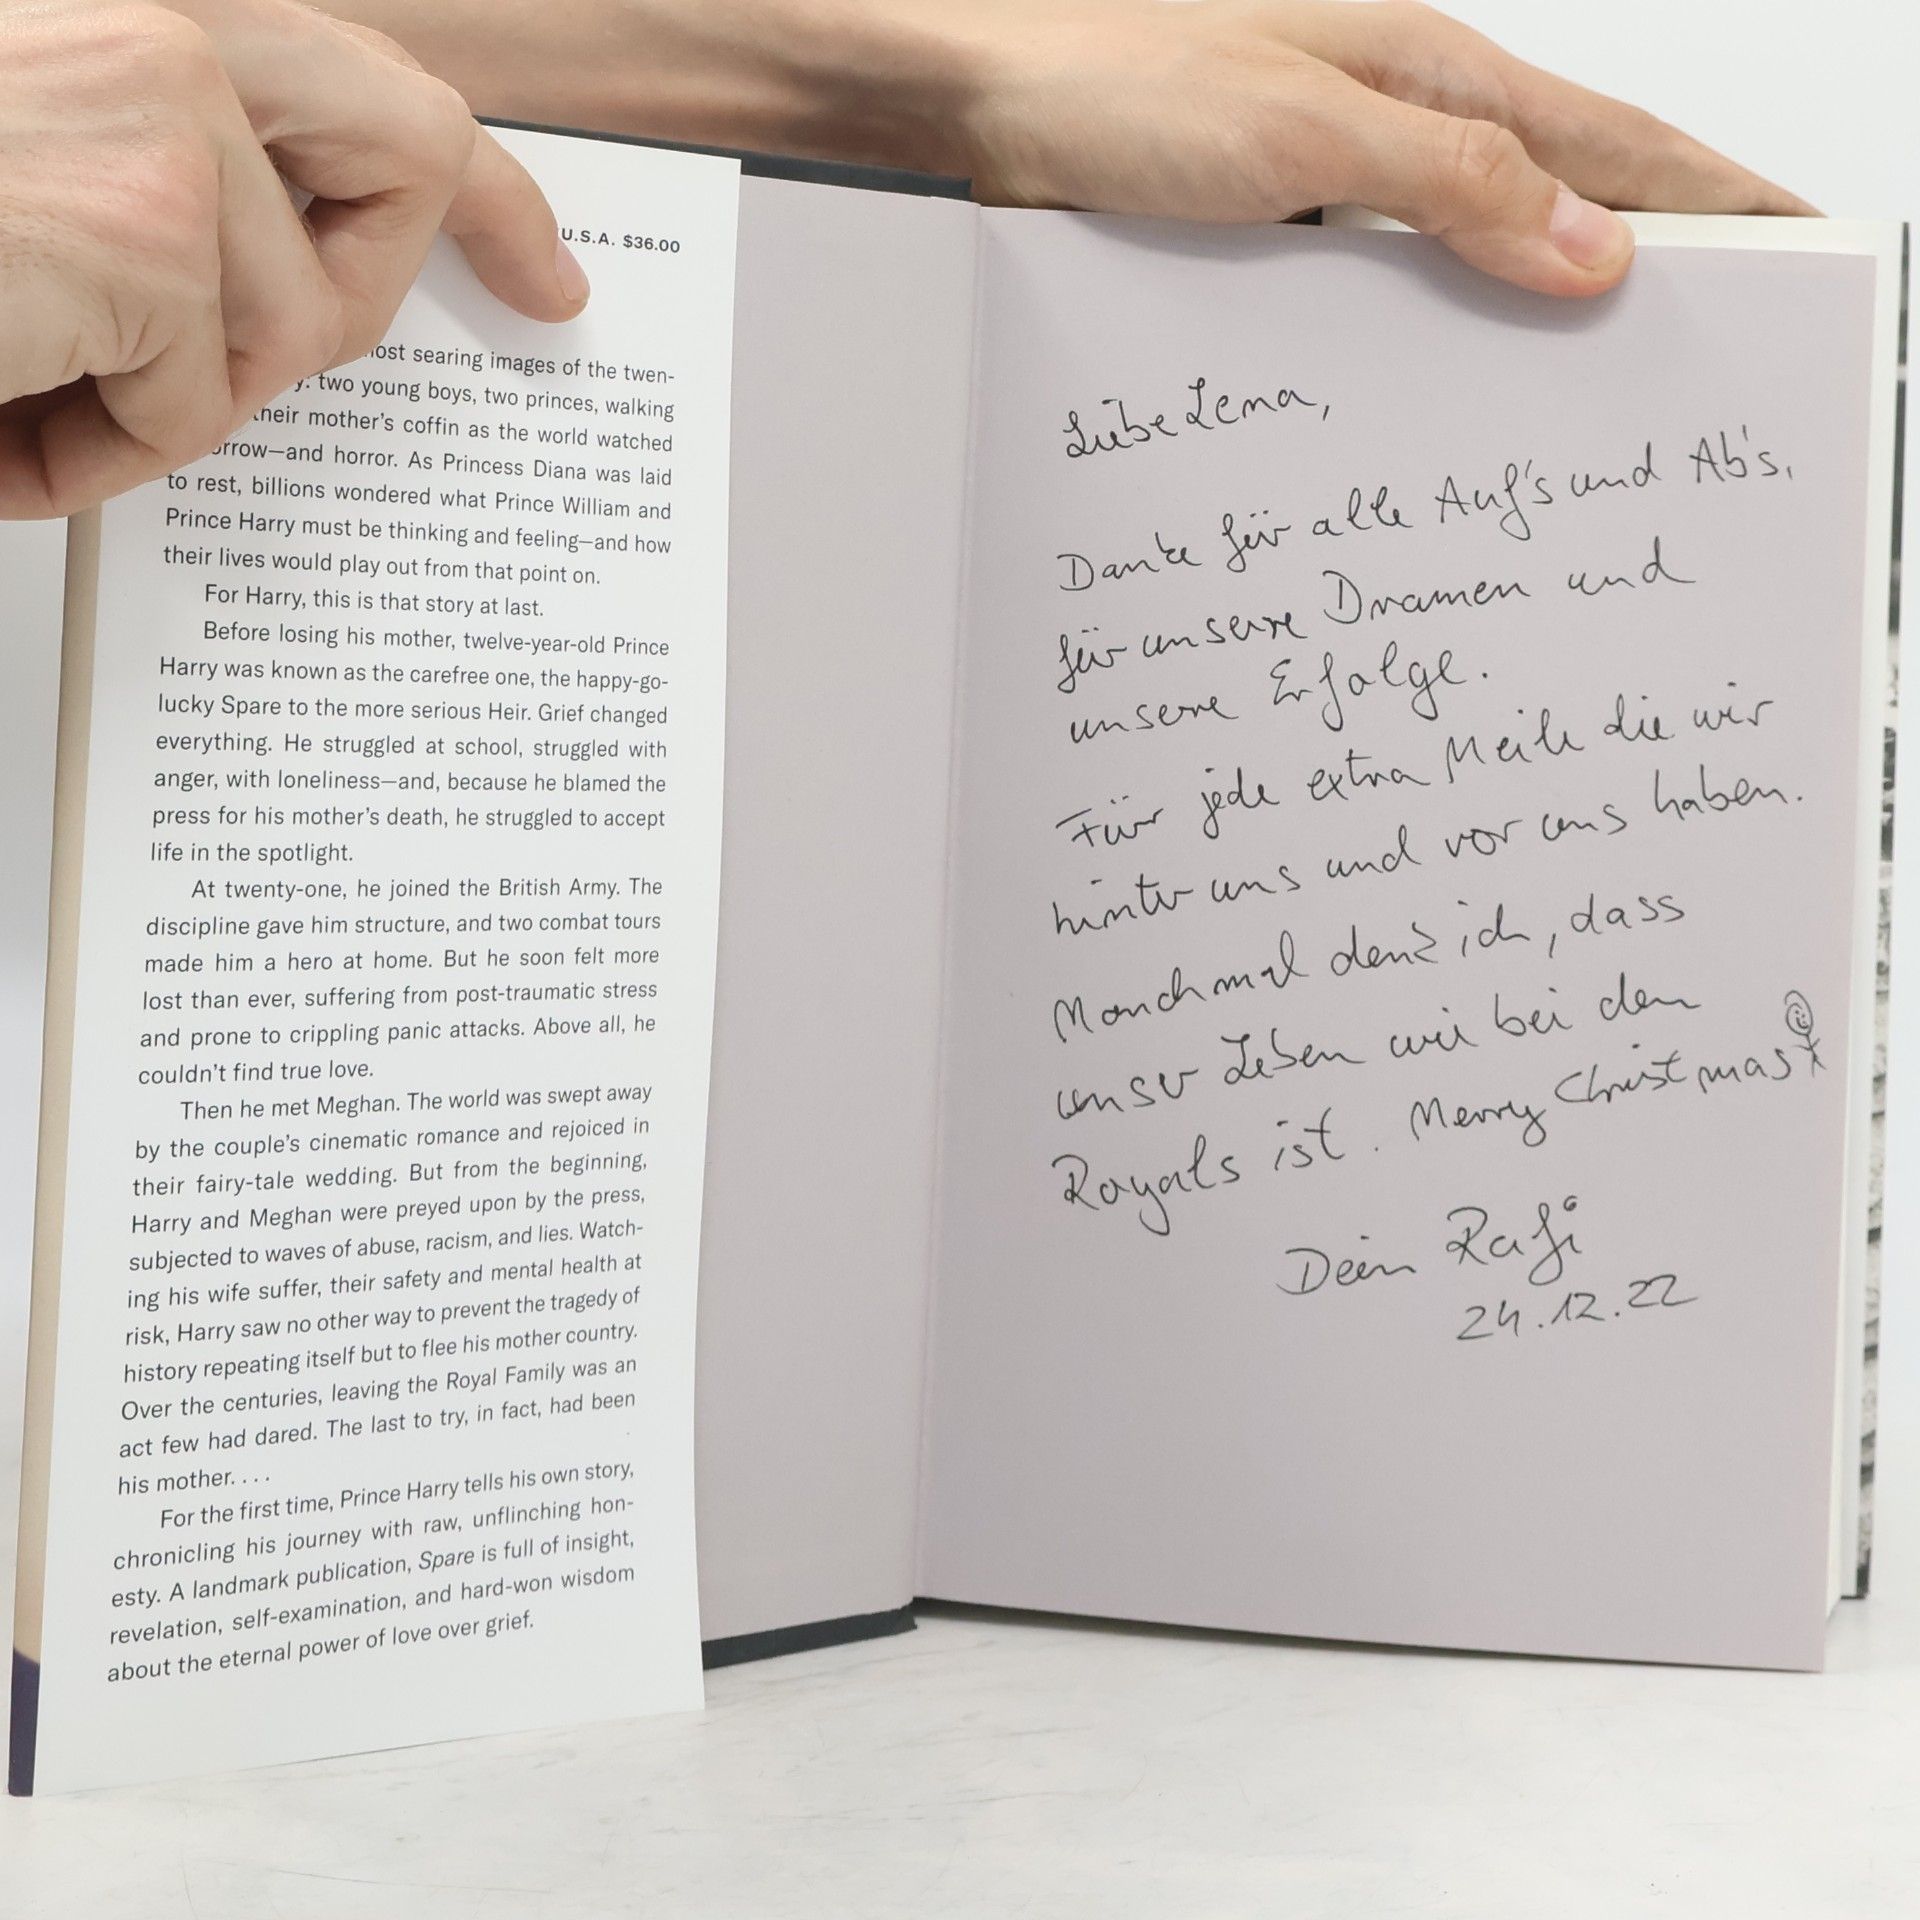 U.S.A. $36.00
searing images of the twen-
two young boys, two princes, walking
their mother's coffin as the world watched
and horror. As Princess Diana was laid
to rest, billions wondered what Prince William and
Prince Harry must be thinking and feeling—and how
their lives would play out from that point on.
For Harry, this is that story at last.
Before losing his mother, twelve-year-old Prince
Harry was known as the carefree one, the happy-go-
lucky Spare to the more serious Heir. Grief changed
everything. He struggled at school, struggled with
anger, with loneliness—and, because he blamed the
press for his mother's death, he struggled to accept
life in the spotlight.
At twenty-one, he joined the British Army. The
discipline gave him structure, and two combat tours
made him a hero at home. But he soon felt more
lost than ever, suffering from post-traumatic stress
and prone to crippling panic attacks. Above all, he
couldn't find true love.
Then he met Meghan. The world was swept away
by the couple's cinematic romance and rejoiced in
their fairy-tale wedding. But from the beginning,
Harry and Meghan were preyed upon by the press,
subjected to waves of abuse, racism, and lies. Watch-
ing his wife suffer, their safety and mental health at
risk, Harry saw no other way to prevent the tragedy of
history repeating itself but to flee his mother country.
Over the centuries, leaving the Royal Family was an
act few had dared. The last to try, in fact, had been
his mother. . . .
For the first time, Prince Harry tells his own story,
chronicling his journey with raw, unflinching hon-
esty. A landmark publication, Spare is full of insight,
revelation, self-examination, and hard-won wisdom
about the eternal power of love over grief.
Liebe Lena,
Danke für alle Auf's und Ab's,
für unsere Dramen und
unsere Erfolge.
Für jede extra Meile die wir
hinter uns und vor uns haben.
Manchmal denk ich, dass
unser Leben wie bei den
Royals ist. Merry Christmas
Dein Rafi
24.12.22